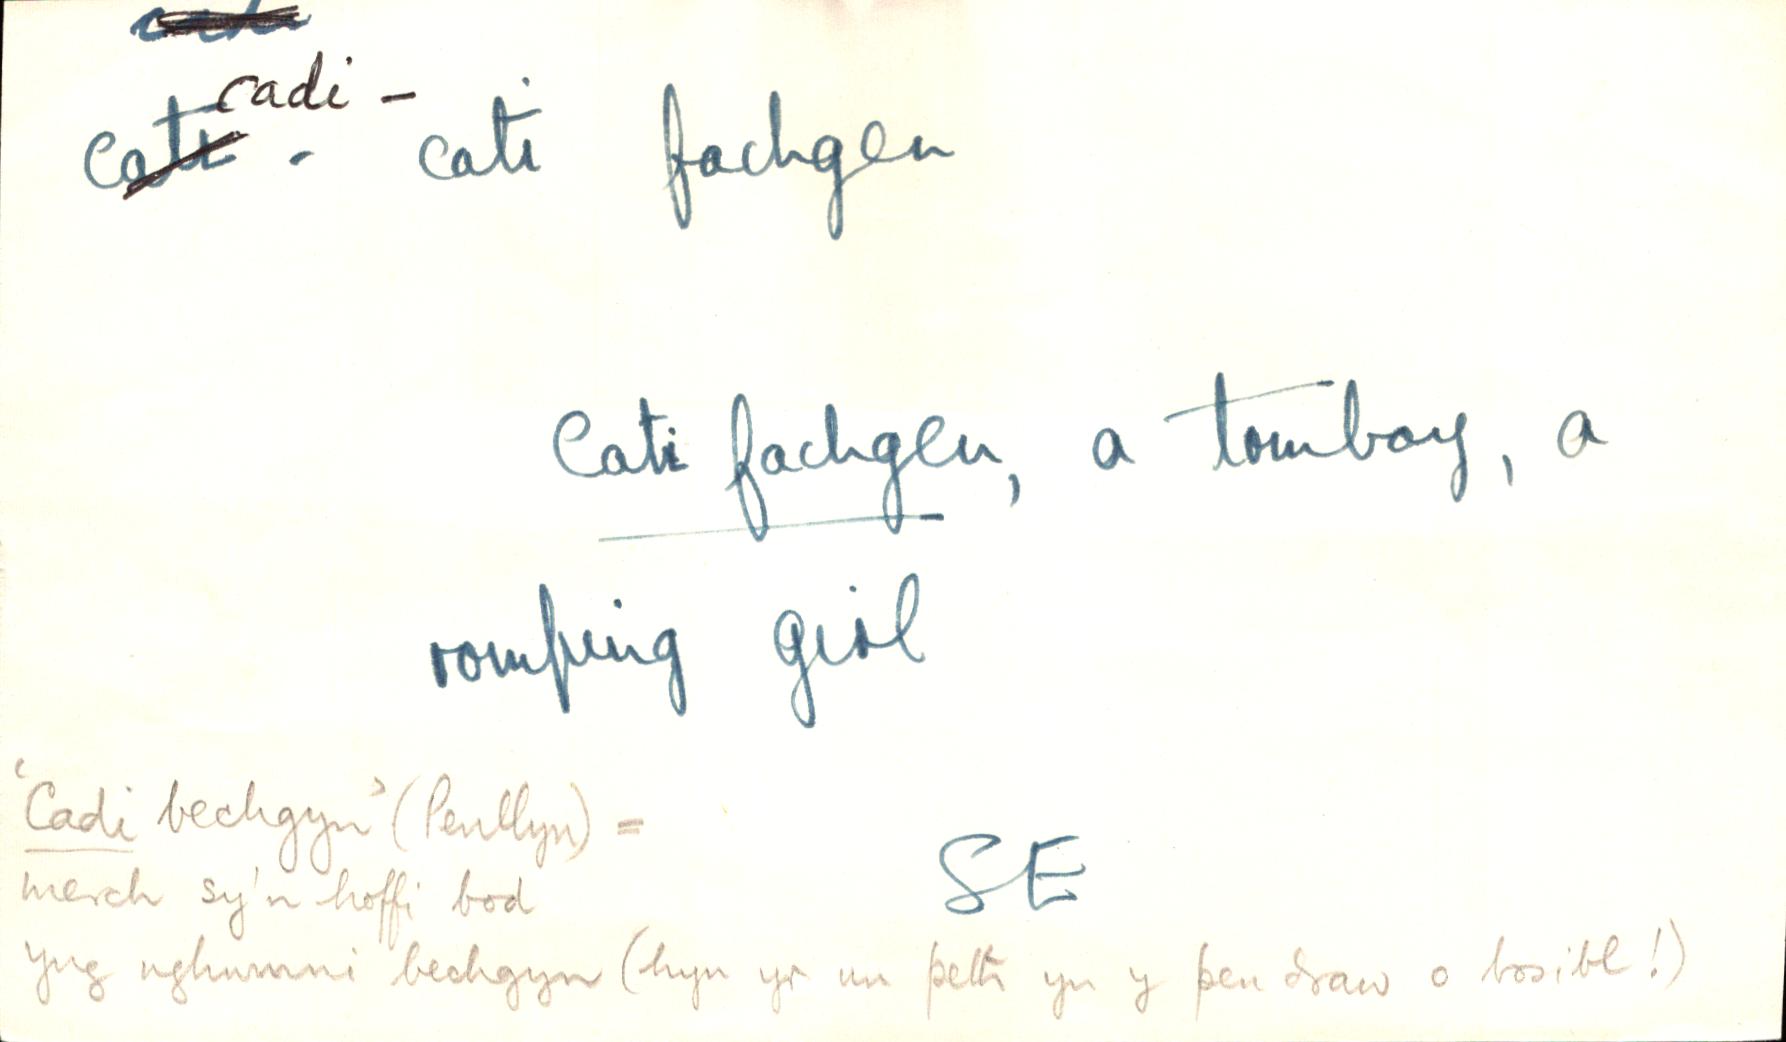 cadi -
cati - cati fachgen
Cati fachgen, a tomboy, a
romping girl
'Cadi bechgyn' (Penllyn) =
SE
merch sy'n hoffi bod
yng nghwmni bechgyn (hyn yr un peth yn y pen draw o bosibl!)